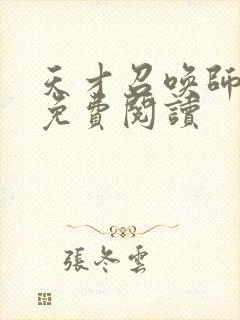 天才召喚師
免費閱讀
張冬雲